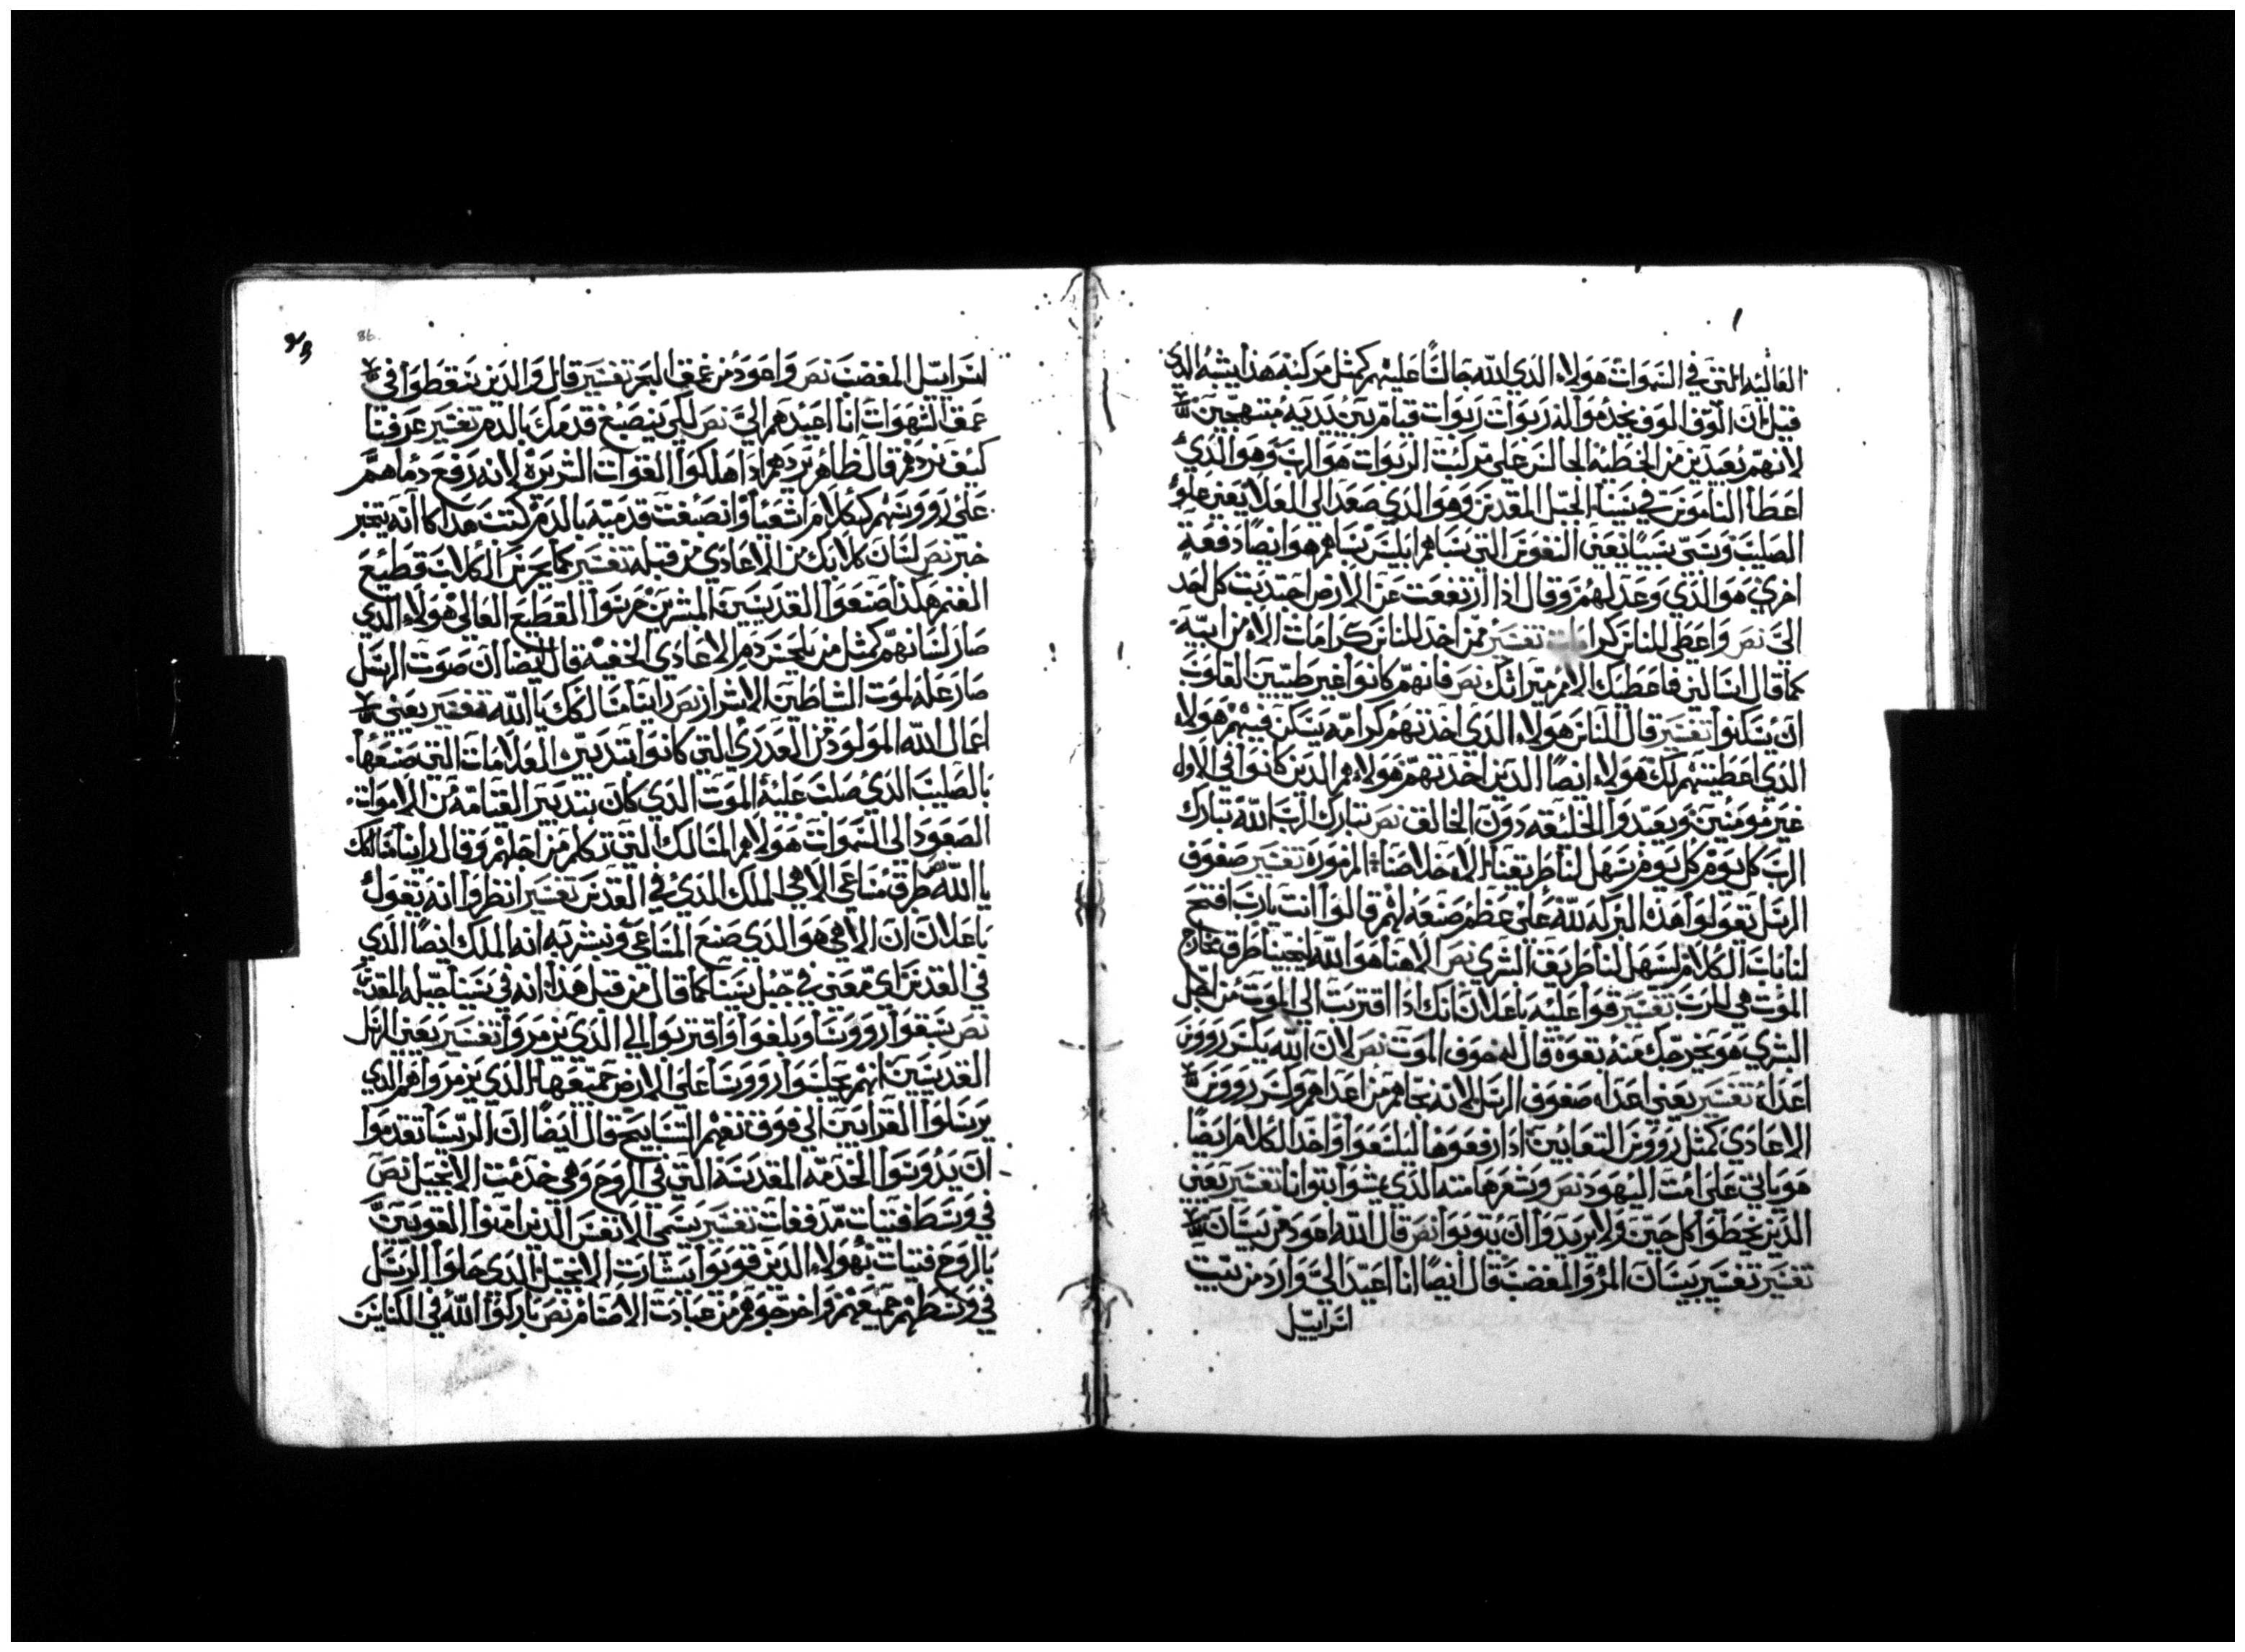 العاليه التي في السموات هولاء الذي الله جالسًا عليهم كمثل مركبة هذا يشبه الذي
قيل ان الوف الوف يخدموا له ربوات ربوات قيام بين يديه مبتهجين
لانهم بعيدين من الخطيه الجالس على مركبت الربوات هو الرب وهو الذي
اعطا الناموس في سينا الجبل المقدس وهو الذي صعد الى العلا يعني علو
الصليب وسبى سبيًا يعني النفوس التي سباهم ابليس سباهم هو ايضًا دفعة
اخري هو الذي وعد لهم وقال اذا ارتفعت عن الارض اجتديت كل احد
الىّ نص واعطى للناس كرامات تفسير ممن اخذ للناس كرامات الا من ابيه
كما قال اسالني فاعطيك الامم ميراثك نص فانهم كانوا غير طيبين القلوب
ان يسكنوا تفسير قال للناس هولاء الذي اخذتهم كرامه يسكن فيهم هولاء
الذي اعطيتهم لك هولاء ايضًا الذين اخذتهم هولاء هم الذين كانوا في الاول
غير مومنين ويعبدوا الخليقه دون الخالق نص تبارك الرب الله تبارك
الرب كل يوم كل يوم يسهل لنا طريقنا الاه خلاصنا المزموره تفسير صفوف
الرسل تقولوا هذه البركه لله على عظم صنعه لهم قالوا انت يارب افتح
لنا باب الكلام لتسهل لنا طريق الشري نص الاهنا هو الله يحيينا طرق مخارج
الموت هي للرب تفسير قوا عليه باعلان انك اذا اقتربت الى الموت من اجل
البشري هو يخرجك منه بقوة قال له خوف الموت نص لان الله يكسر رووس
اعداه تفسير يعني اعداه صفوف الرسل لانه نجاهم من اعداهم وكسر رووس
الاعادي كمثل رووس التعابين اذا رفعوها ليلسعوا واحد الكلام ايضًا
هو ياتي على امت اليهود نص وشعر هامته الذي مشوا بتوانا تفسير يعني
الذين يخطوا كل حين ولا يريدوا ان يتوبوا نص قال الله اعود من بيسان
تفسير تفسير بيسان المر والمغضب قال ايضًا انا اعيد اليّ وارد من بيت
اسراييل
86
اسراييل المغضب نص واعود من عمق البحر تفسير قال والذين يسقطوا في
عمق الشهوات انا اعيدهم اليّ نص لكي ينصبغ قدمك بالدم تفسير عرفنا
كيف نردهم قال ظاهر يردهم اذا هلكوا القوات الشريرة لانه رفع دماهم
على رووسهم ككلام اشعيا وانصبغت قدميه بالدم كتبت هذا كا انه يتخبر
خبر نص لسان كلابك من الاعادي من قبله تفسير كما يحرس الكلاب قطيع
الغنم هكذا صنعوا القديسين المبشرين حرسوا القطيع العالي هولاء الذي
صار لسانهم كمثل من يلحس دم الاعادي الخفيه قال ايضا ان صوت الرسل
صار عله لموت الشاطين الاشرار نص راينا مسالكك يا الله تفسير يعني
اعمال الله المولود من العدري التي كانوا بتدبير العلامات التي صنعها
بالصليب الذي صلب عليه الموت الذي كان بتدبير القيامه من الاموات
الصعود الى السموات هولاء هم المسالك التي تكلم من اجلهم وقال راينا مسالكك
يا الله نص طرق مساعي الاهي الملك الذي في القدس تفسير انظروا انه يقول
باعلان ان الاهي هو الذي صنع المساعي ونبشر به انه الملك ايضًا الذي
في القدس اي معني في جبل سينا كما قال من قبل هذا انه في سينا جبله المقدس
نص سبقوا اروونسا وبلغوا واقتربوا الي الذي يزمروا تفسير يعني الرسل
القديسين انهم يجلسوا اروونسا على الارض جميعها الذي يزمروا هم الذي
يرسلوا القرابين الى فوق نعم التسابيح قال ايضًا ان الريسا تقدموا
ان يدرسوا الخدمه المقدسة التي في الروح وهي خدمت الانجيل نص
في وسط فتيات مدفعات تفسير يسمي الانفس الذين امنوا المقويين
بالروح فتيات هولاء الذين قويوا بشارت الانجيل الذي حلوا الرسل
في وسطهم جميعهم واخرجوهم من عبادت الاصنام نص باركوا الله في الكنايس